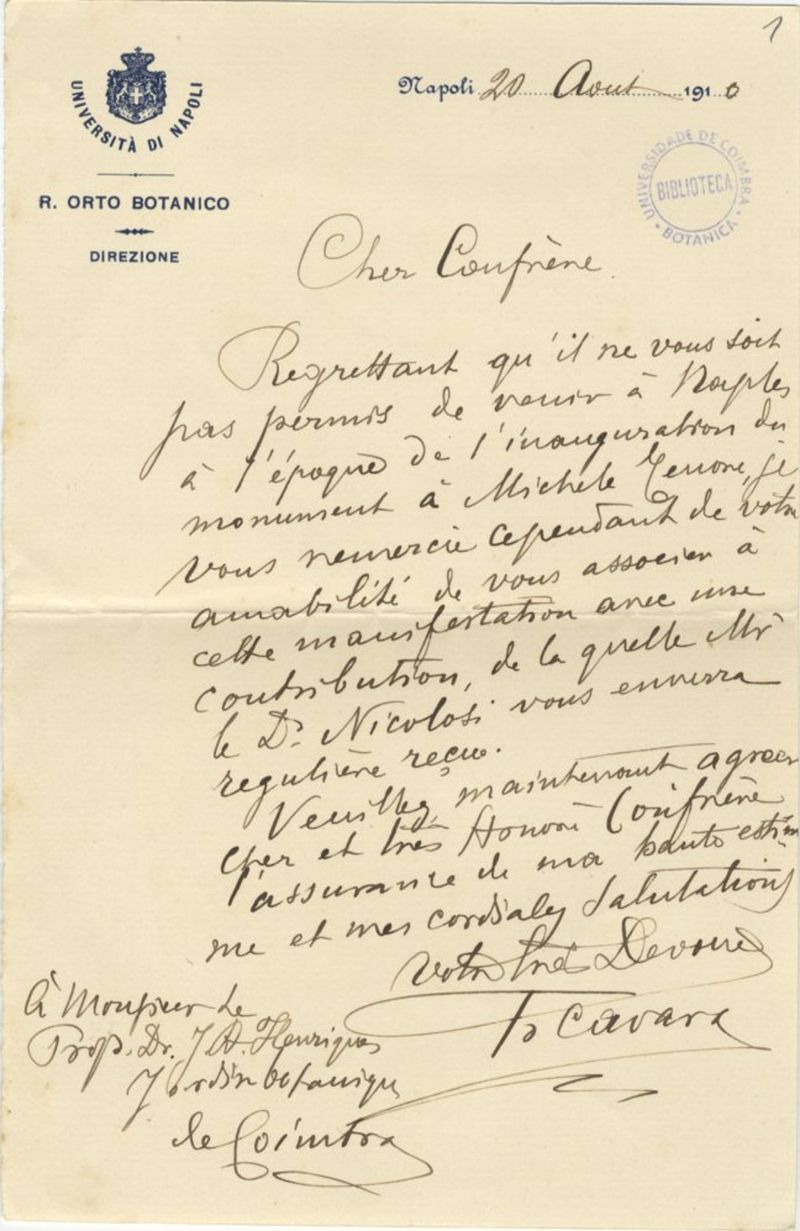 1
UNIVERSITÀ DI NAPOLI
R. ORTO BOTANICO
DIREZIONE
Napoli 20 Aout 1910
UNIVERSIDADE DE COIMBRA
BIBLIOTECA
BOTANICA
Cher Confrère.
Regrettant qu'il ne vous soit
pas permis de venir à Naples
à l'époque de l'inauguration du
monument à Michele Tenore, je
vous remercie cependant de votre
amabilité de vous associer à
cette manifestation avec une
contribution, de la quelle Mr
le Dr. Nicolosi vous enverra
regulière reçu.
Veuillez, maintenant agreer
cher et très Honoré Confrère
l'assurance de ma haute estim
me et mes cordiales salutations
Votre très Devoué
Fr Cavara
À Monsieur le
Prof. Dr. J. A. Henriques
Jardin botanique
de Coimbra